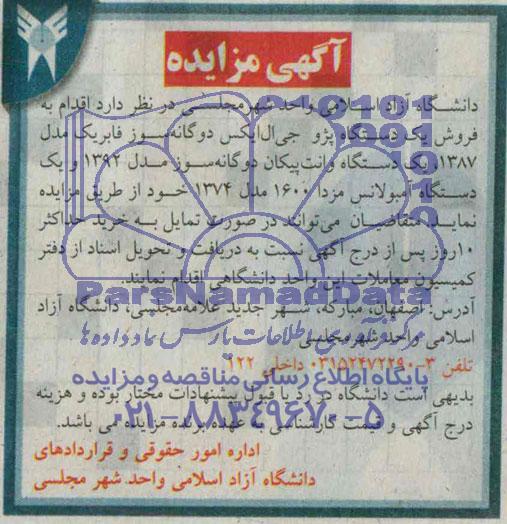 آگهی مزایده
دانشگاه آزاد اسلامی واحد شهرمجلسی در نظر دارد اقدام به
فروش یک دستگاه پژو جی‌ال‌ایکس دوگانه‌سوز فابریک مدل
۱۳۸۷، یک دستگاه وانت‌پیکان دوگانه‌سوز مدل ۱۳۹۲ و یک
دستگاه آمبولانس مزدا ۱۶۰۰ مدل ۱۳۷۴ خود از طریق مزایده
نماید. متقاضیان می‌توانند در صورت تمایل به خرید حداکثر
۱۰روز پس از درج آگهی نسبت به دریافت و تحویل اسناد از دفتر
کمیسیون معاملات این واحد دانشگاهی اقدام نمایند.
ParsNamadData
آدرس: اصفهان، مبارکه، شهر جدید علامه‌مجلسی، دانشگاه آزاد
اسلامی واحد شهرمجلسی
تلفن ۳-۰۳۱۵۲۴۷۲۲۹۰ داخلی ۱۲۲
پایگاه اطلاع رسانی مناقصه و مزایده
بدیهی است دانشگاه در رد یا قبول پیشنهادات مختار بوده و هزینه
۰۲۱-۸۸۳۴۹۶۷۰-۵
درج آگهی و قیمت کارشناسی به عهده برنده مزایده می باشد.
اداره امور حقوقی و قراردادهای
دانشگاه آزاد اسلامی واحد شهر مجلسی